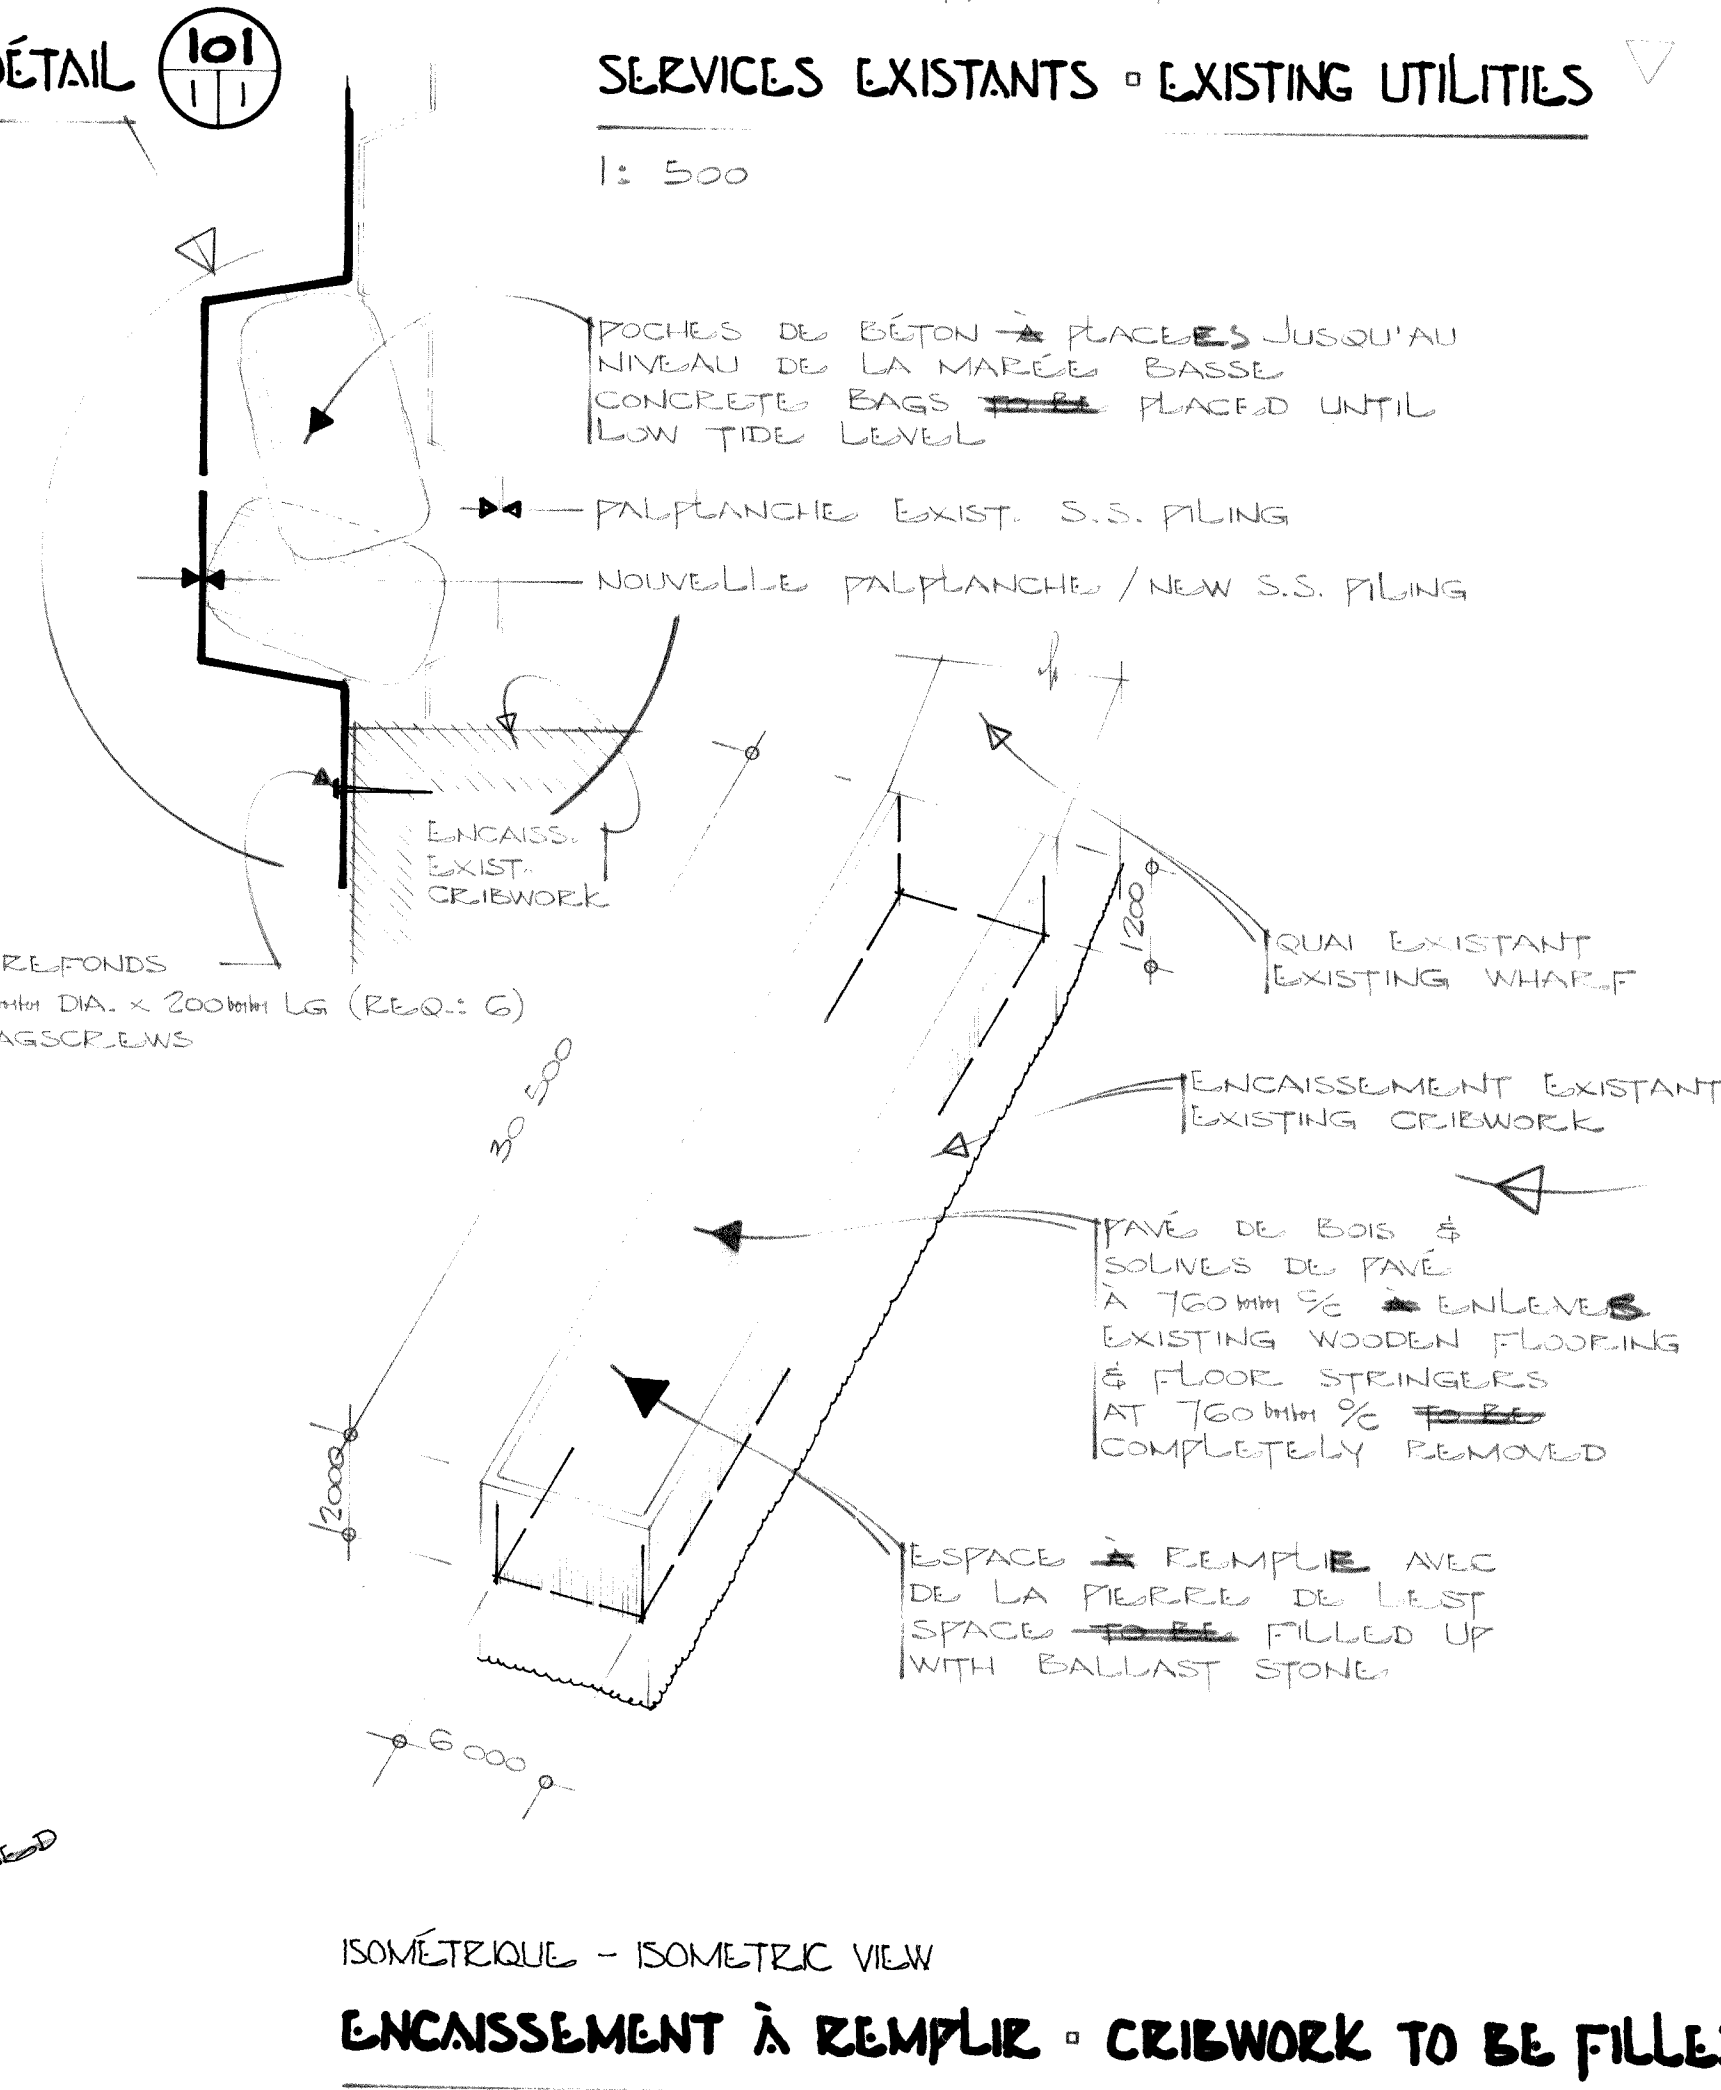 DÉTAIL 101
1 1
SERVICES EXISTANTS ▫ EXISTING UTILITIES
1: 500
POCHES DE BÉTON À PLACEES JUSQU'AU
NIVEAU DE LA MARÉE BASSE
CONCRETE BAGS TO BE PLACED UNTIL
LOW TIDE LEVEL
PALPLANCHE EXIST. S.S. PILING
NOUVELLE PALPLANCHE / NEW S.S. PILING
ENCAISS.
EXIST.
CRIBWORK
REFONDS
mm DIA. x 200mm LG (REQ.: 6)
AGSCREWS
1200
QUAI EXISTANT
EXISTING WHARF
30 500
ENCAISSEMENT EXISTANT
EXISTING CRIBWORK
PAVÉ DE BOIS &
SOLIVES DE PAVÉ
À 760mm c/c À ENLEVES
EXISTING WOODEN FLOORING
& FLOOR STRINGERS
AT 760mm o/c TO BE
COMPLETELY REMOVED
2000
ESPACE À REMPLIE AVEC
DE LA PIERRE DE LEST
SPACE TO BE FILLED UP
WITH BALLAST STONE
6000
ISOMÉTRIQUE - ISOMETRIC VIEW
ENCAISSEMENT À REMPLIR ▫ CRIBWORK TO BE FILLE